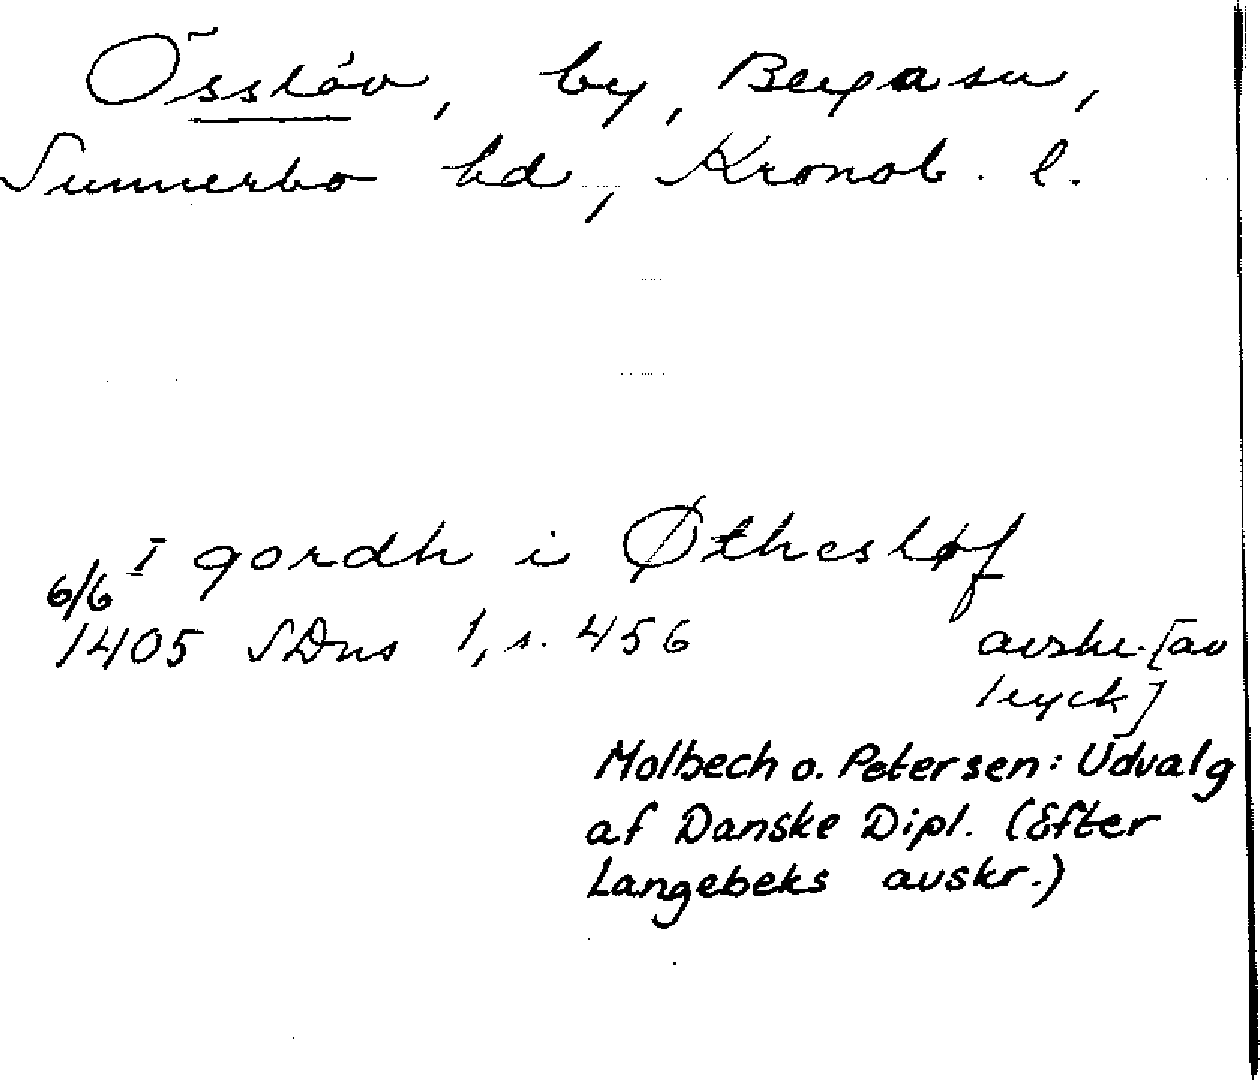 Össlöv, by, Berga sn,
Sunnerbo hd, Kronob. l.
I gordh i Øthesløf
6/6
1405 SDns 1, s. 456 avskr. [av
tryck]
Molbech o. Petersen: Udvalg
af Danske Dipl. (Efter
Langebeks avskr.)